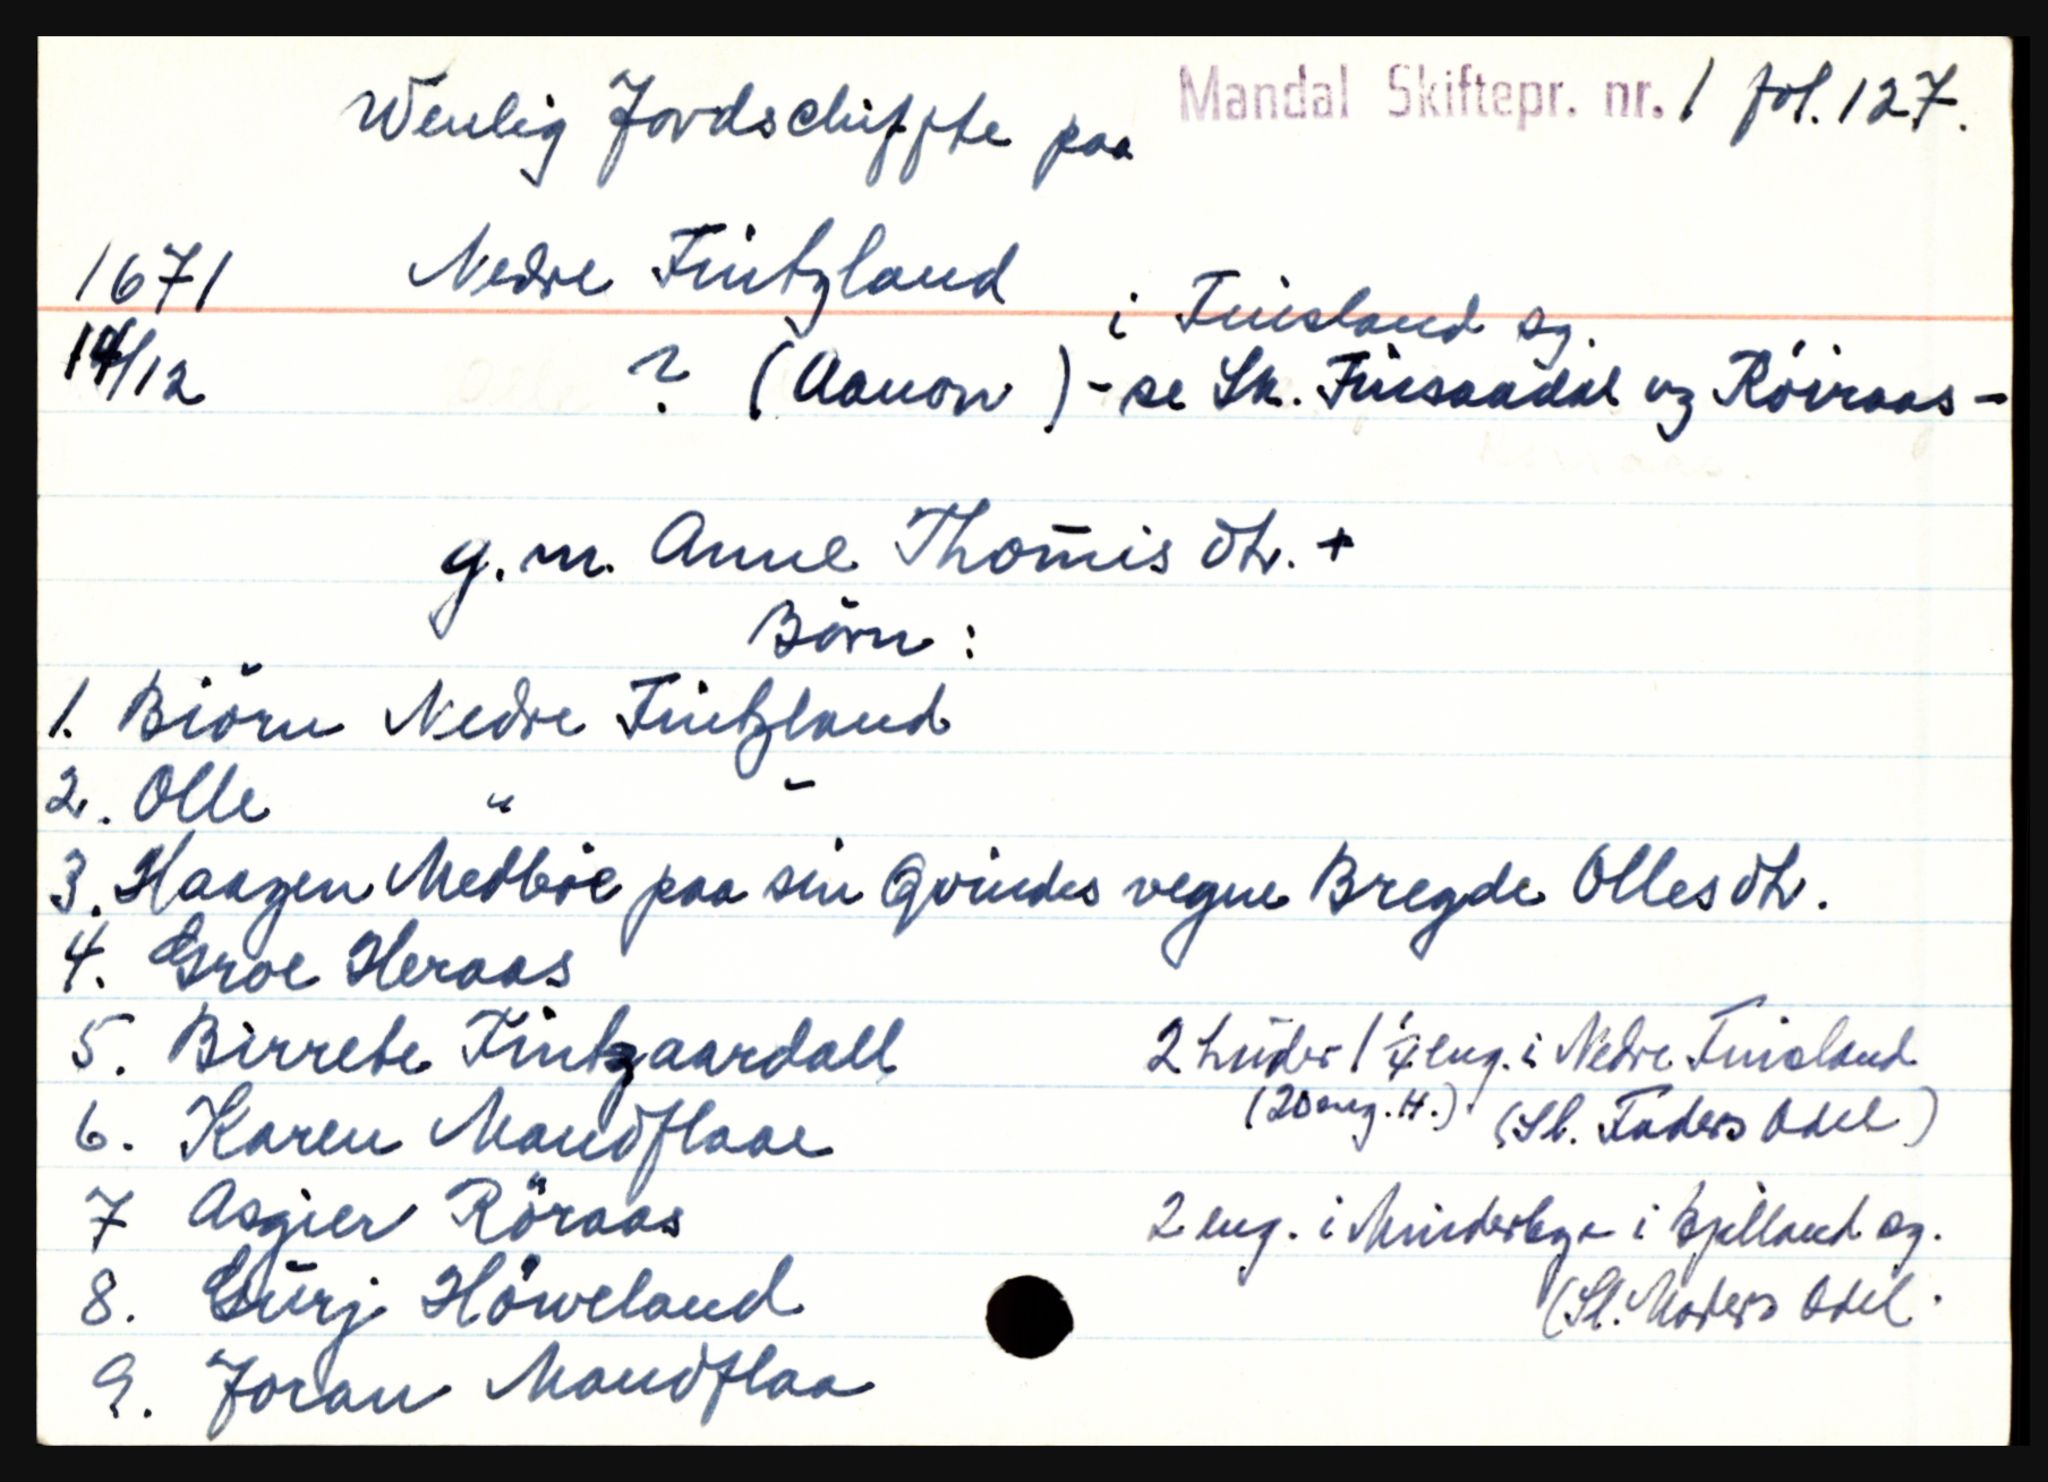 Mandal Skiftepr. nr. 1 fol. 127.
Wenlig Jordschiffte paa
1671 Nedre Fintzland
i Finsland sg.
14/12 ? (Aanon) - se Sk. Finsaadal og Röiraas -
g. m. Anne Thomis dtr. +
Börn :
1. Biörn Nedre Fintzland
2. Olle " "
3. Haagen Medböe paa sin Qvindes vegne Bregde Olles dtr.
4. Groe Heraas
5. Birrete Fintzaardall
2 huder 1 1/4 eng. i Nedre Finsland
(20 eng. H.) (Sl. Faders Odel)
6. Karen Mandflaae
7 Asgier Röraas
2 eng. i Minderbye i Bjelland sg.
8. Gurj Höweland
(Sl. Moders Odel.
9. Joran Mandflaa